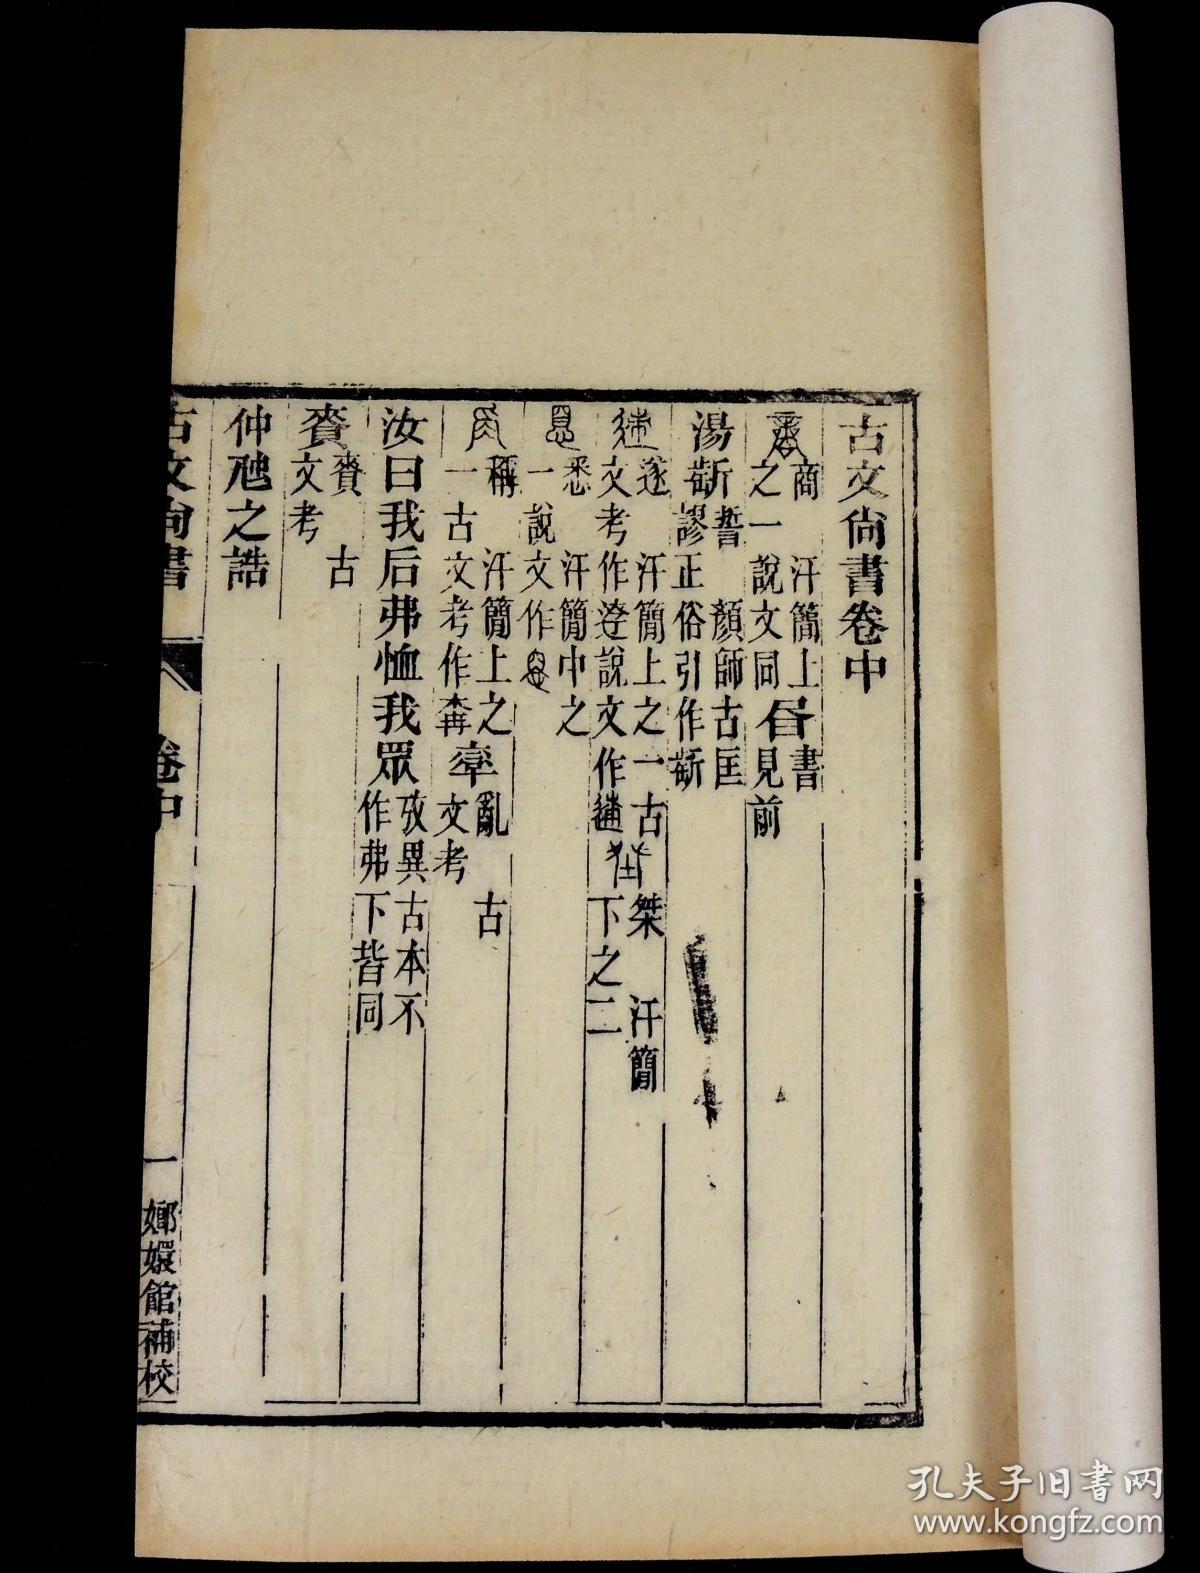 古文尙書卷中
商 汗簡上之一說文同 𦘠書見前
湯斳誓 顏師古匡謬正俗引作斳
遂 汗簡上之一古文考作𨒉說文作𨔶 桀 汗簡下之二
悉 汗簡中之一說文作
稱 汗簡上之一古文考作 亂 古文考
汝曰我后弗恤我眾 攷異古本不作弗下皆同
賚 賚 古文考
仲虺之誥
古文尙書 卷中 一 嫏嬛館補校
孔夫子旧书网
www.kongfz.com